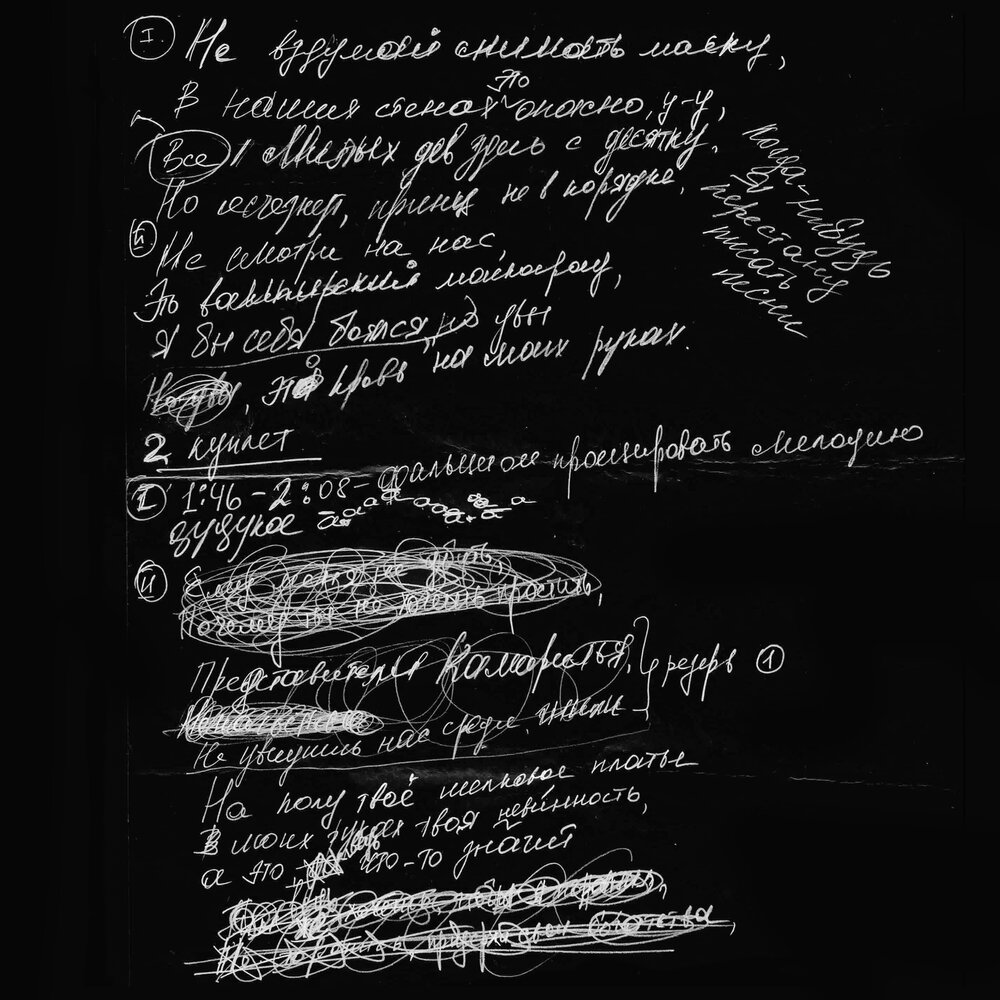 I Не вздумай снимать маску,
В наших стенах это опасно, у-у,
Все Милых дев здесь с десяток,
Но исчезнет, принц не в порядке.
II Не смотри на нас,
Это вампирский маскарад,
Я бы себя боялся, но увы
это кровь на моих руках.
Когда-нибудь
я
перестану
писать
песни
2 куплет
I 1:46 - 2:08 - фальцетом проецировать мелодию
звуков а а а а а а а а а а
II
Почему ты не хочешь простить,
Представителей Камарильи,
Не увидишь нас среди
резерв 1
На полу твоё шелковое платье
В моих руках твоя невинность,
а это что-то значит